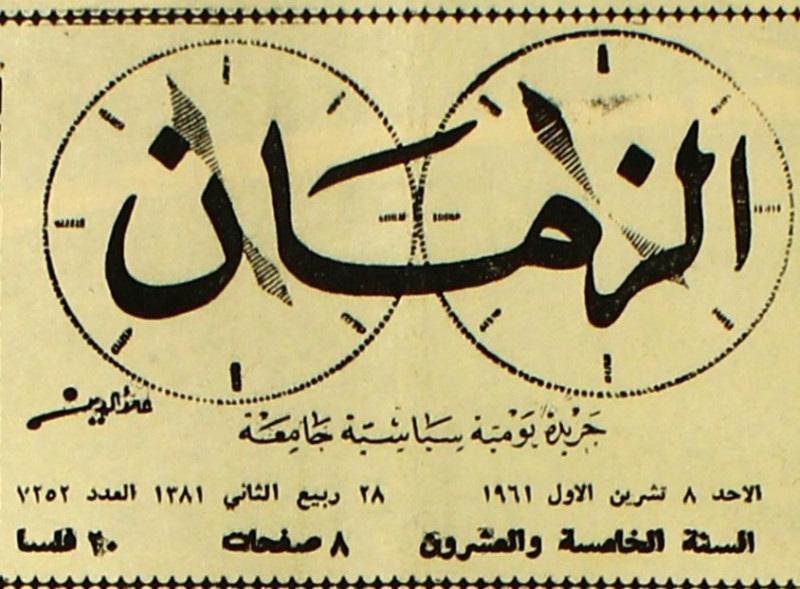 الزمان
علاء الدين
جَريدة يَوْميَة سيَاسيَّة جَامِعَة
الاحد ٨ تشرين الاول ١٩٦١ ٢٨ ربيع الثاني ١٣٨١ العدد ٧٢٥٢
السنة الخامسة والعشرون ٨ صفحات ٢٠ فلسا